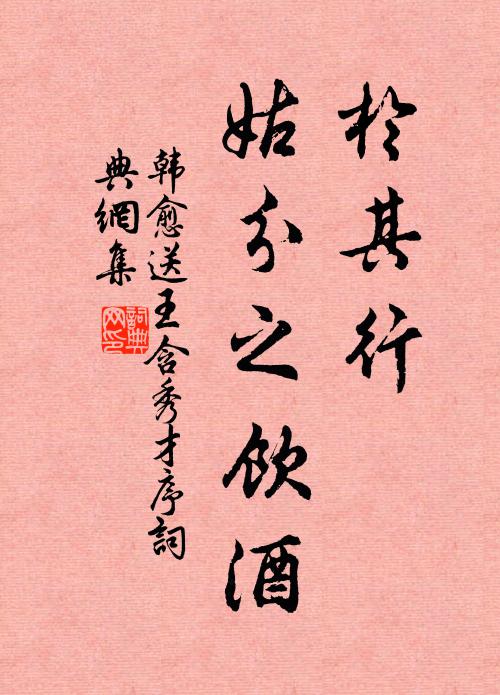 於其行
姑分之飲酒
韩愈送王含秀才序詞
典網集
詞典网印